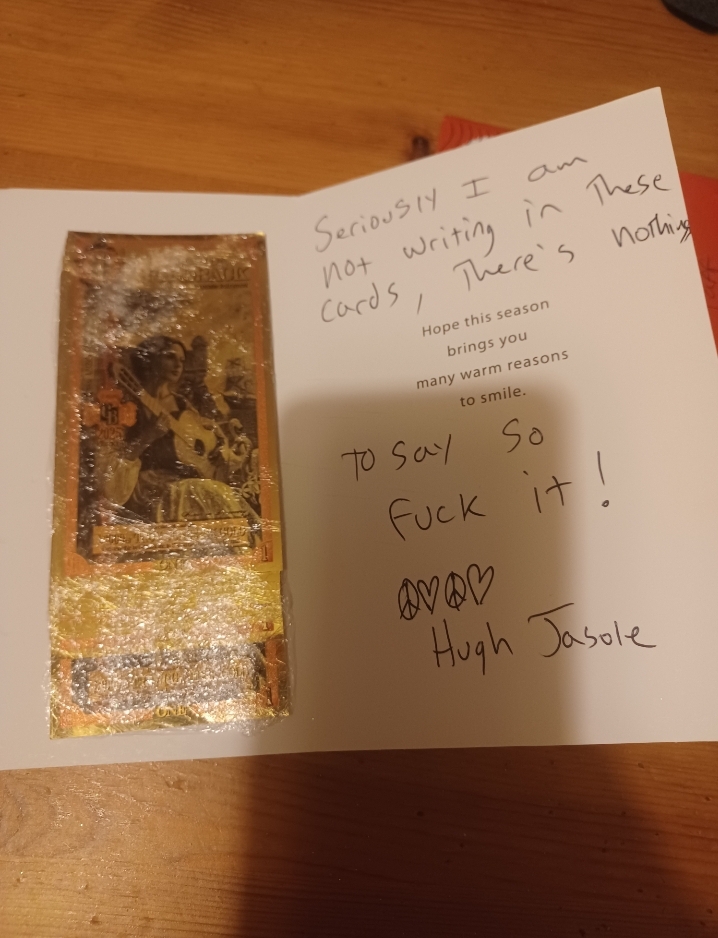 Seriously I am
not writing in These
cards, There's nothing
Hope this season
brings you
many warm reasons
to smile.
To say so
Fuck it!
Hugh Jasole